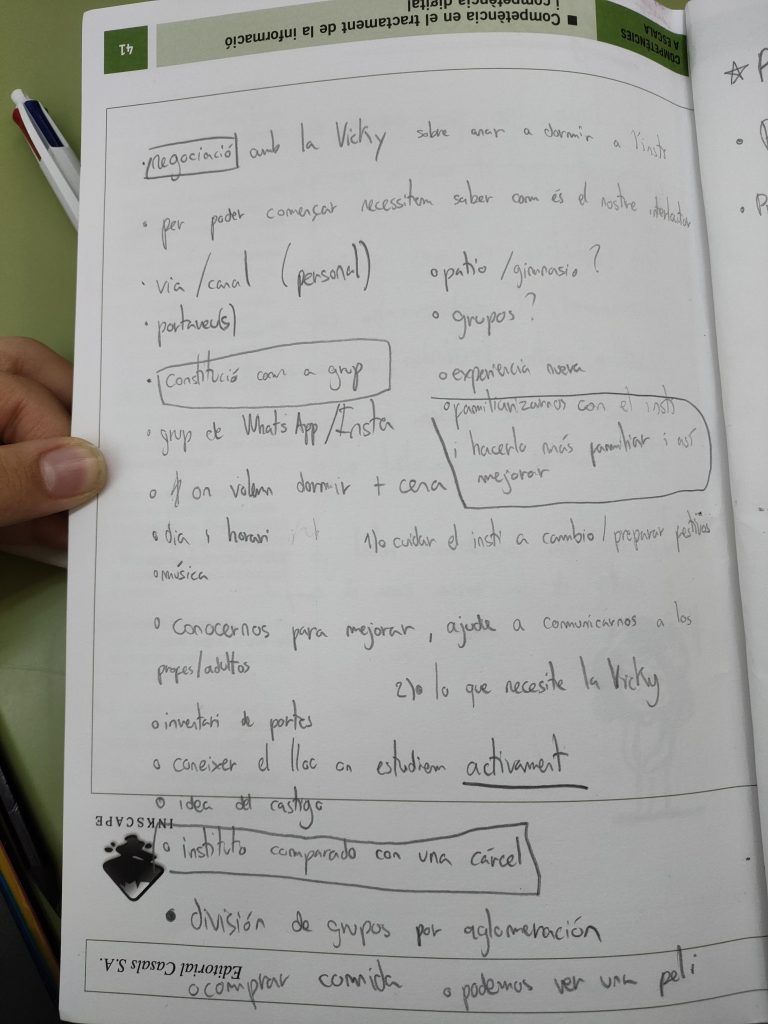 41
■ Competència en el tractament de la informació
i competència digital
COMPETÈNCIES
A ESCALA
· negociació amb la Vicky sobre anar a dormir a l'insti
· per poder començar necessitem saber com és el nostre interlocutor
· via/canal (personal)
o patio /gimnasio?
· portaveu(s)
o grupos?
· Constitució com a grup
o experiencia nueva
o familiarizarnos con el insti
i hacerlo más familiar i así
mejorar
· grup de WhatsApp/Insta
o on volem dormir + cena
o dia i horari
1)o cuidar el insti a cambio/preparar festivos
o música
o conocernos para mejorar, ajude a comunicarnos a los
profes/adultos
2)o lo que necesite la Vicky
o inventari de portes
o coneixer el lloc on estudiem activament
o idea del castigo
INKSCAPE
o instituto comparado con una cárcel
• división de grupos por aglomeración
Editorial Casals S.A.
o comprar comida
o podemos ver una peli